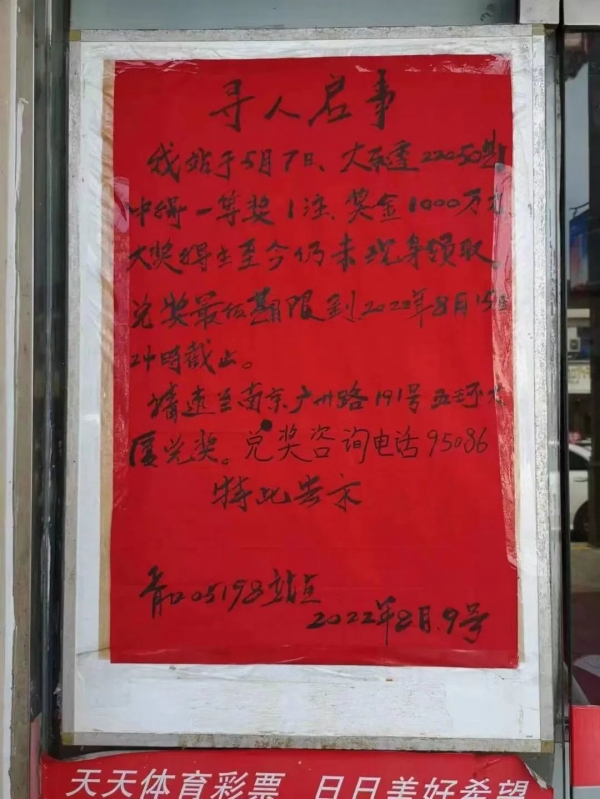 寻人启事
我站于5月7日、大乐透22050期
中得一等奖1注、奖金1000万元
大奖得主至今仍未现身领取。
兑奖最后期限到2022年8月15日
24时截止。
请速至南京广州路191号五环大
厦兑奖。兑奖咨询电话95086
特此告示
05198站点
2022年8月9号
天天体育彩票 日日美好希望